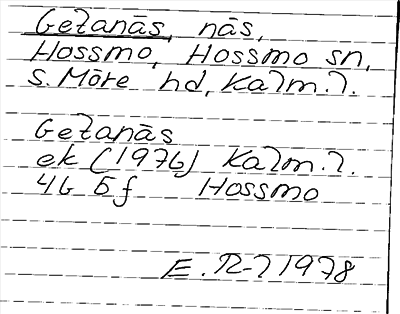 Getanäs, näs,
Hossmo, Hossmo sn,
S. Möre hd, Kalm. l.
Getanäs
ek (1976) Kalm. l.
4G 5f Hossmo
E. R-l 1978